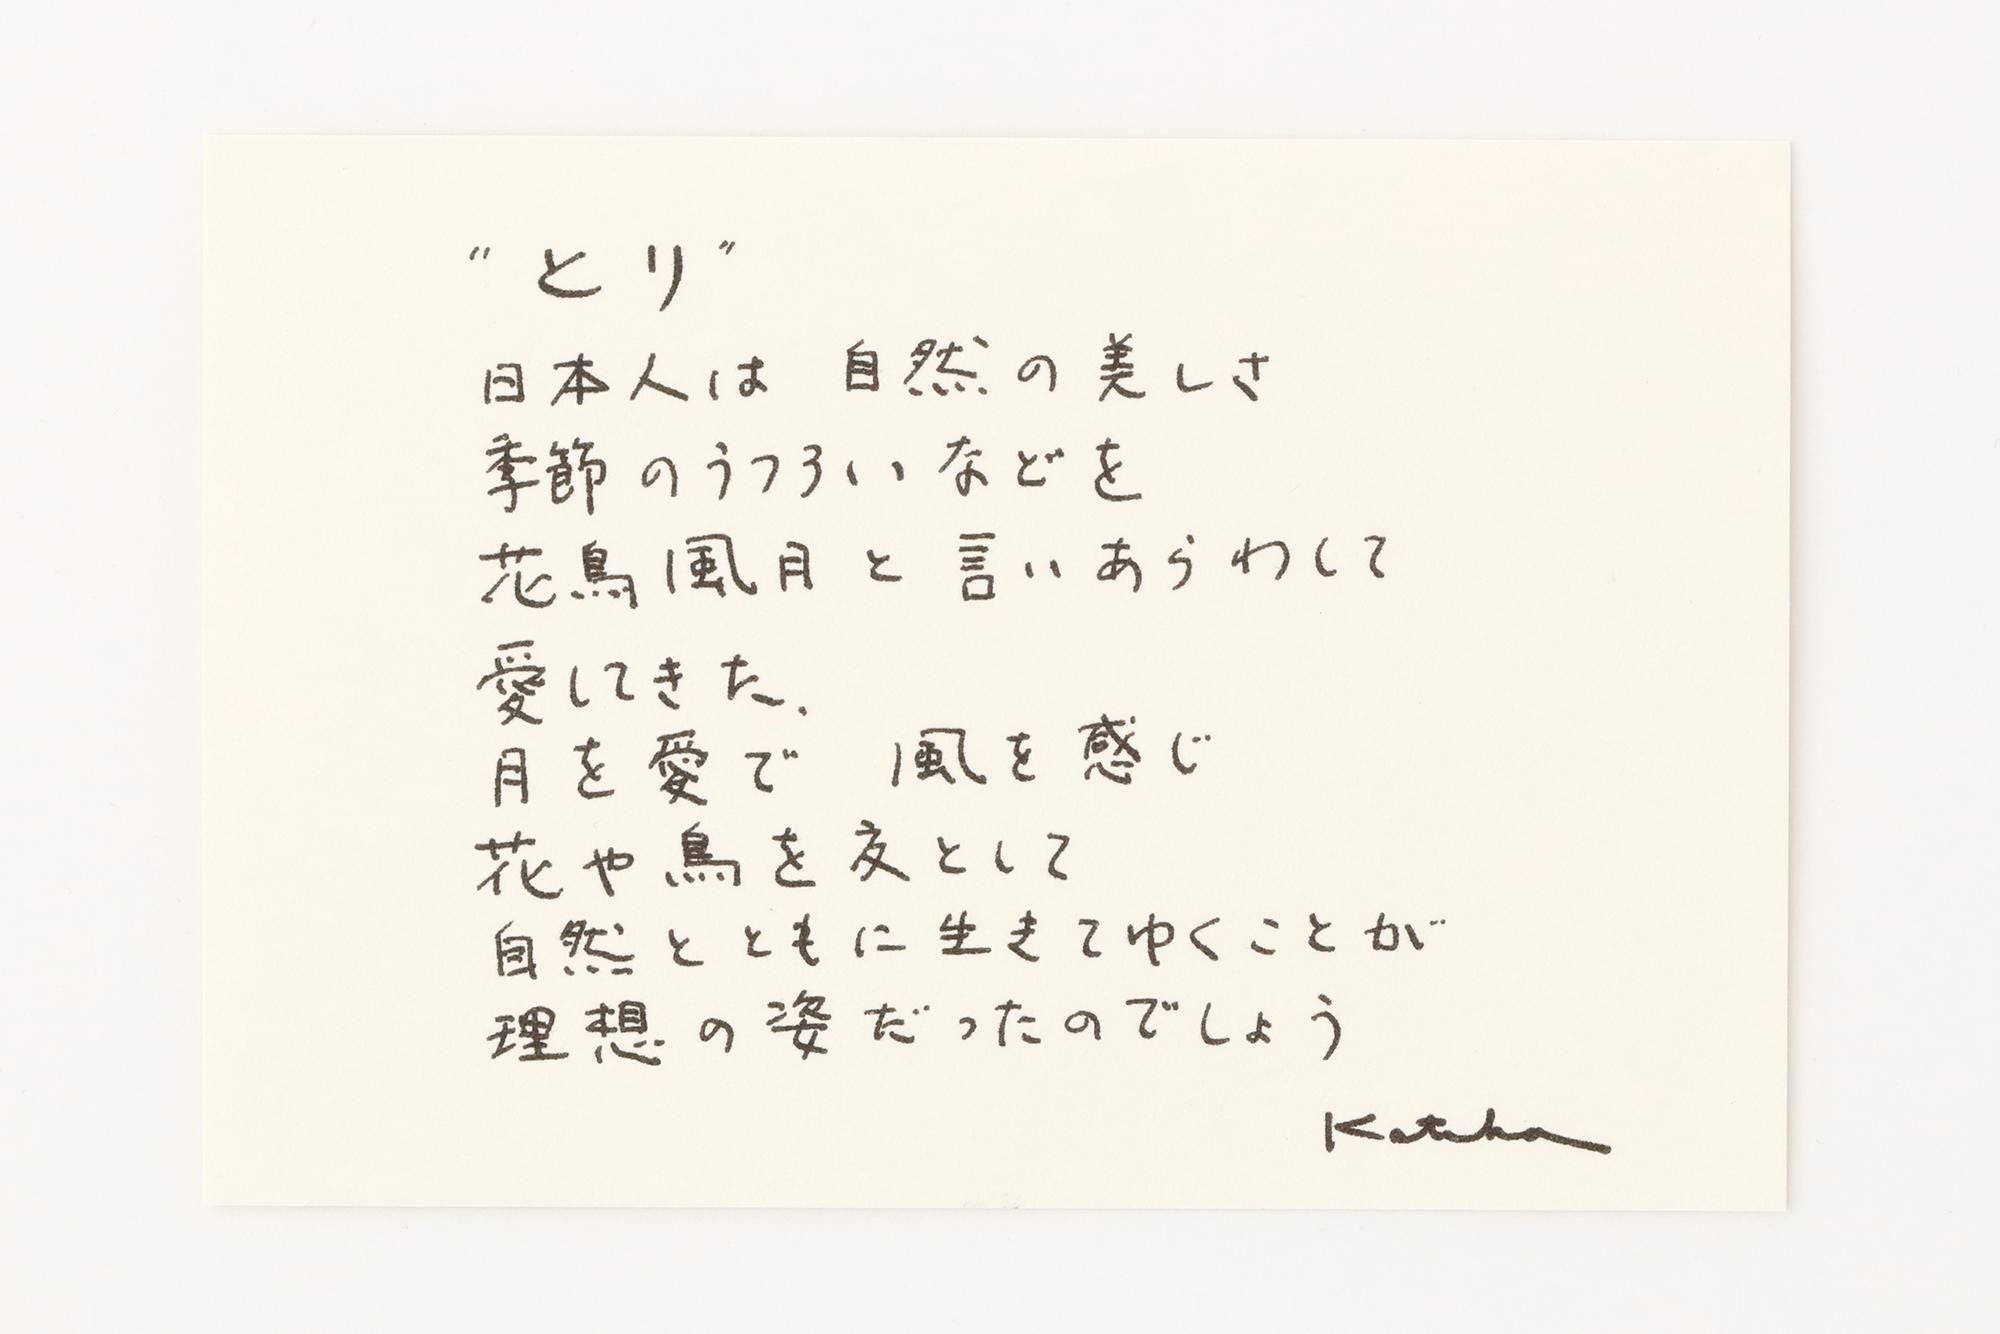 "とり"
日本人は 自然の美しさ
季節のうつろいなどを
花鳥風月と言いあらわして
愛してきた.
月を愛で 風を感じ
花や鳥を友として
自然とともに生きてゆくことが
理想の姿だったのでしょう